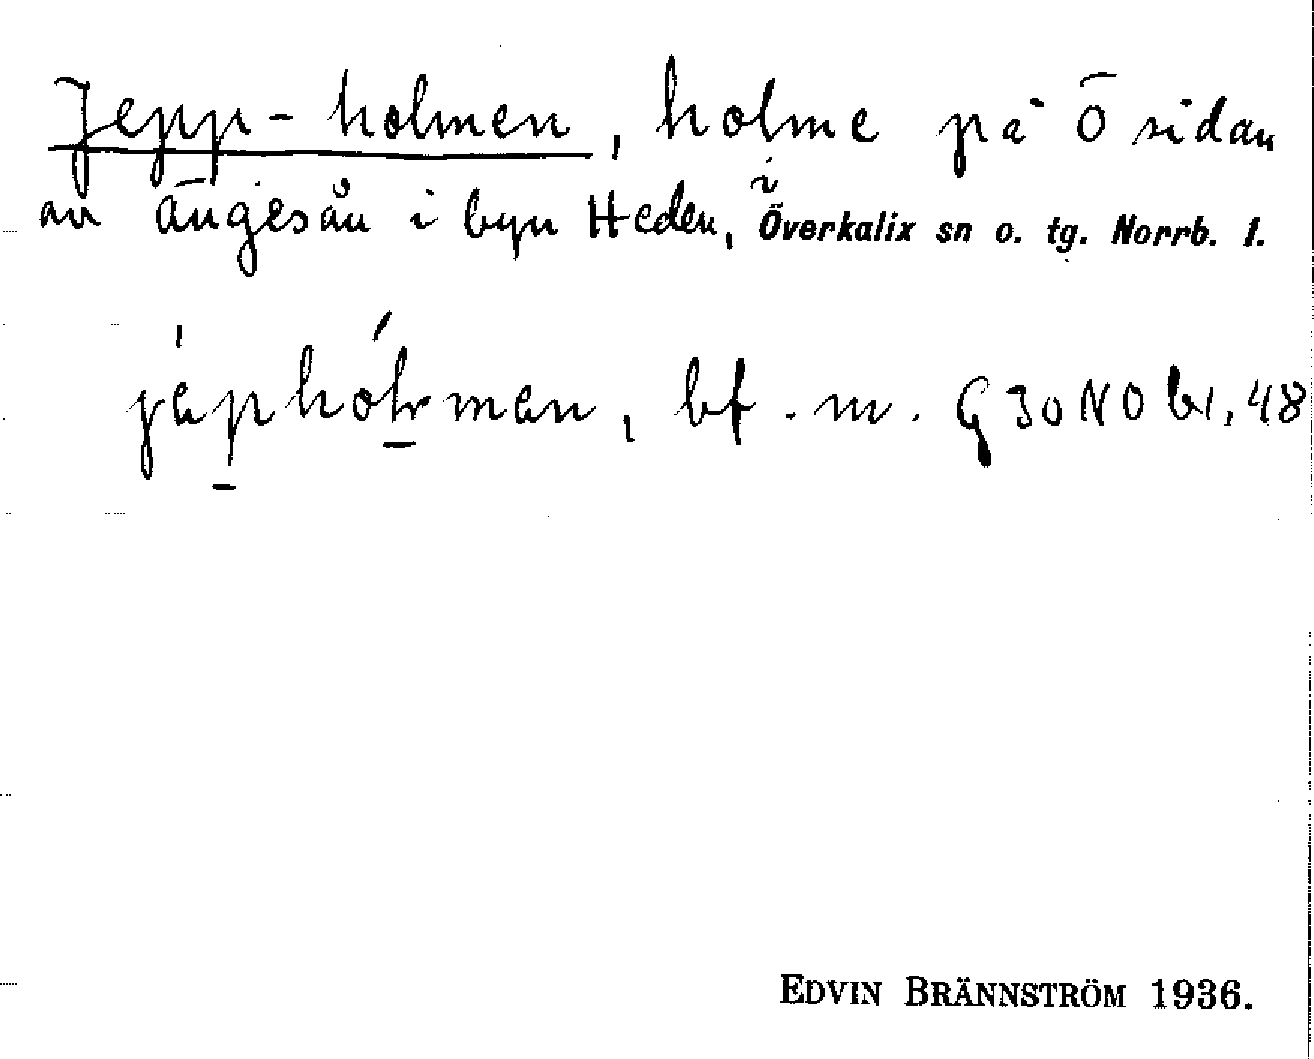 Jepp-holmen, holme på Ö sidan
av Ängesån i byn Heden, i Överkalix sn o. tg. Norrb. l.
bf. m. G 30 NO bl. 48
EDVIN BRÄNNSTRÖM 1936.